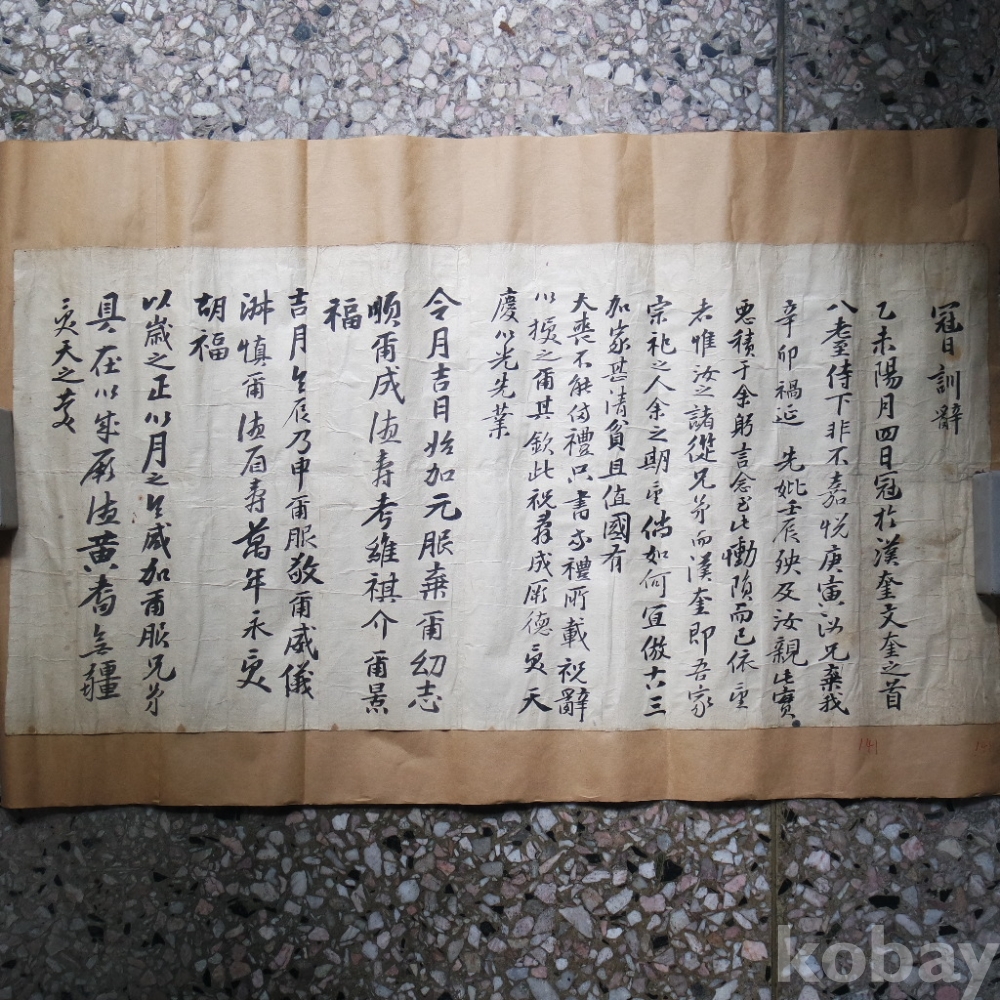 冠日訓辭
乙未陽月四日冠於漢奎文奎之首
八耋侍下非不嘉悅庚寅沙兄棄我
辛卯禍延 先妣壬辰殃及汝親此實
惡積于余躬言念至此慟隕而已依重
者惟汝之諸從兄弟而漢奎即吾家
宗祀之人余之期重倘如何宜倣古三
加家甚清貧且值國有
大喪不能備禮只書家禮所載祝辭
以授之爾其欽此祝辭成厥德受天
慶以光先業
令月吉日始加元服棄爾幼志
順爾成德壽考維祺介爾景
福
吉月令辰乃申爾服敬爾威儀
淑慎爾德眉壽萬年永受
胡福
以歲之正以月之令咸加爾服兄弟
具在以成厥德黃耇無疆
受天之慶
141
kobay